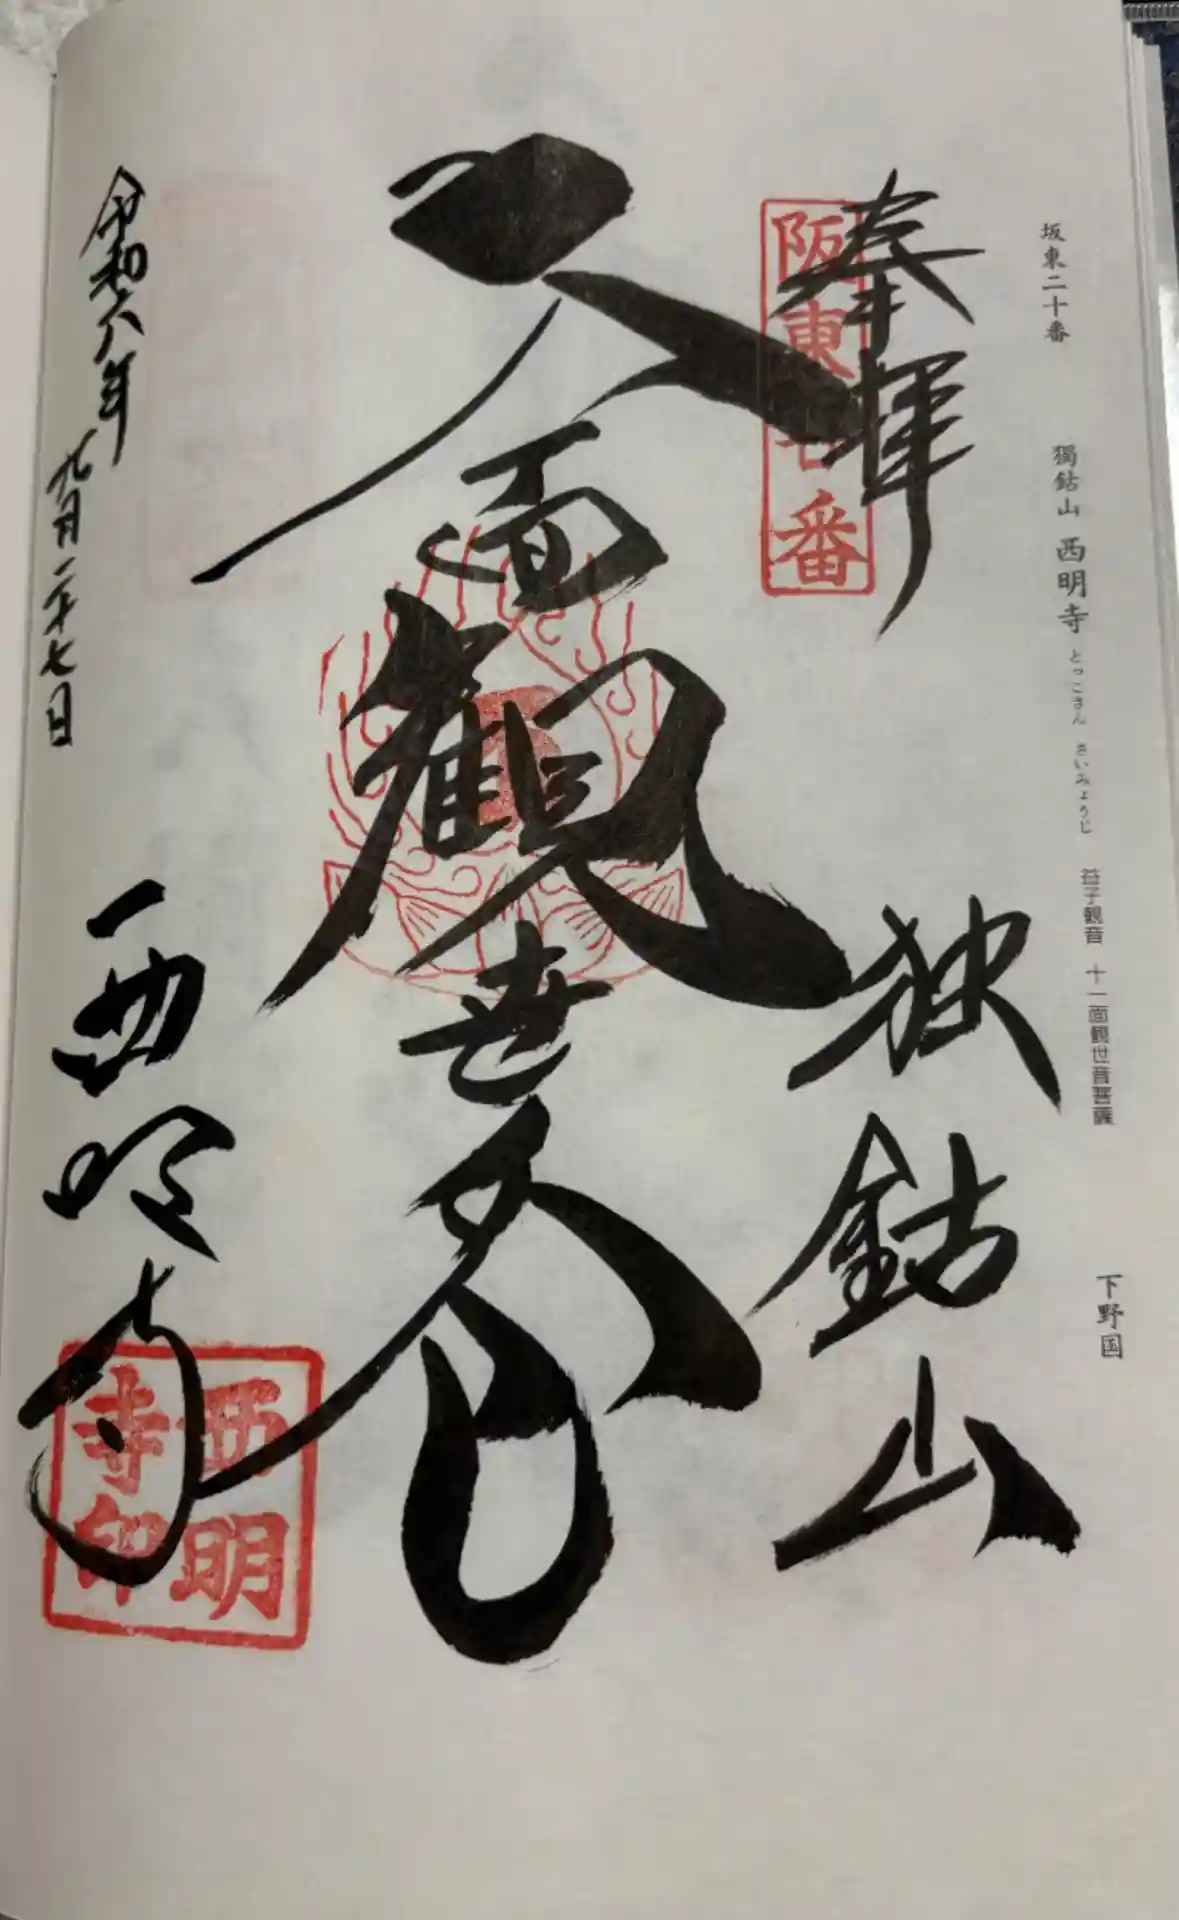 坂東二十番 獨鈷山 西明寺 とっこさん さいみょうじ 益子観音 十一面観世音菩薩 下野国
奉拝
阪東廿番
独鈷山
面観世音
令和六年九月二十七日
西明寺
西明
寺印